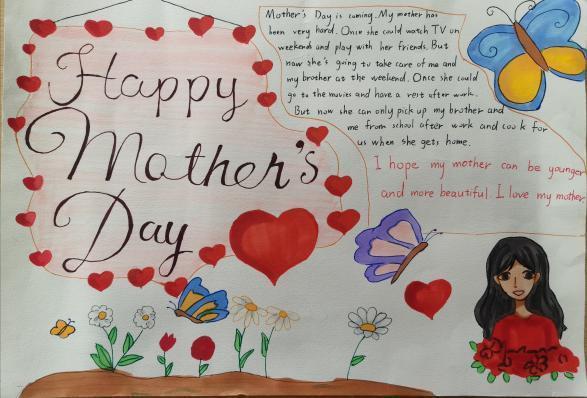 Happy
Mother's
Day
Mother's Day is coming. My mother has
been very hard. Once she could watch TV on
weekend and play with her friends. But
now she's going to take care of me and
my brother at the weekend. Once she could
go to the movies and have a rest after work.
But now she can only pick up my brother and
me from school after work and cook for
us when she gets home.
I hope my mother can be younger
and more beautiful. I love my mother